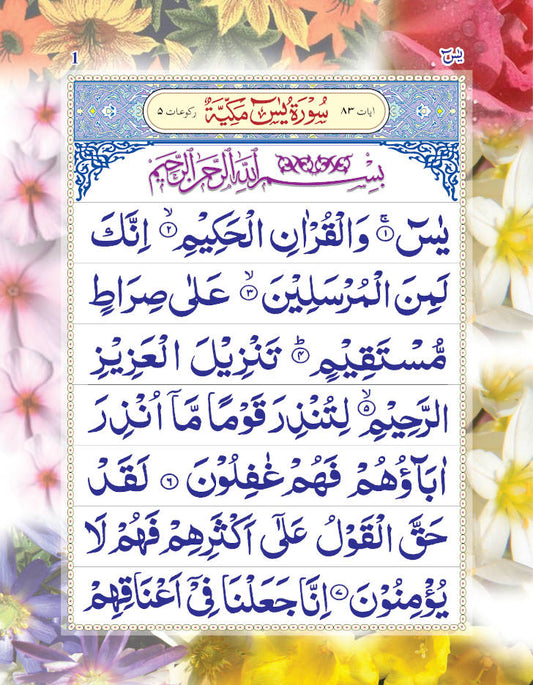 1
یٰسٓ
اٰیات ۸۳ سُوْرَۃُ یٰسٓ مَکِّیَّۃٌ رکوعات ۵
بِسْمِ اللّٰهِ الرَّحْمٰنِ الرَّحِیْمِ
یٰسٓ ۚ﴿۱﴾ وَالْقُرْاٰنِ الْحَکِیْمِ ۙ﴿۲﴾ اِنَّكَ
لَمِنَ الْمُرْسَلِیْنَ ۙ﴿۳﴾ عَلٰی صِرَاطٍ
مُّسْتَقِیْمٍ ؕ﴿۴﴾ تَنْزِیْلَ الْعَزِیْزِ
الرَّحِیْمِ ۙ﴿۵﴾ لِتُنْذِرَ قَوْمًا مَّاۤ اُنْذِرَ
اٰبَآؤُهُمْ فَهُمْ غٰفِلُوْنَ ﴿۶﴾ لَقَدْ
حَقَّ الْقَوْلُ عَلٰۤی اَکْثَرِهِمْ فَهُمْ لَا
یُؤْمِنُوْنَ ﴿۷﴾ اِنَّا جَعَلْنَا فِیْۤ اَعْنَاقِهِمْ